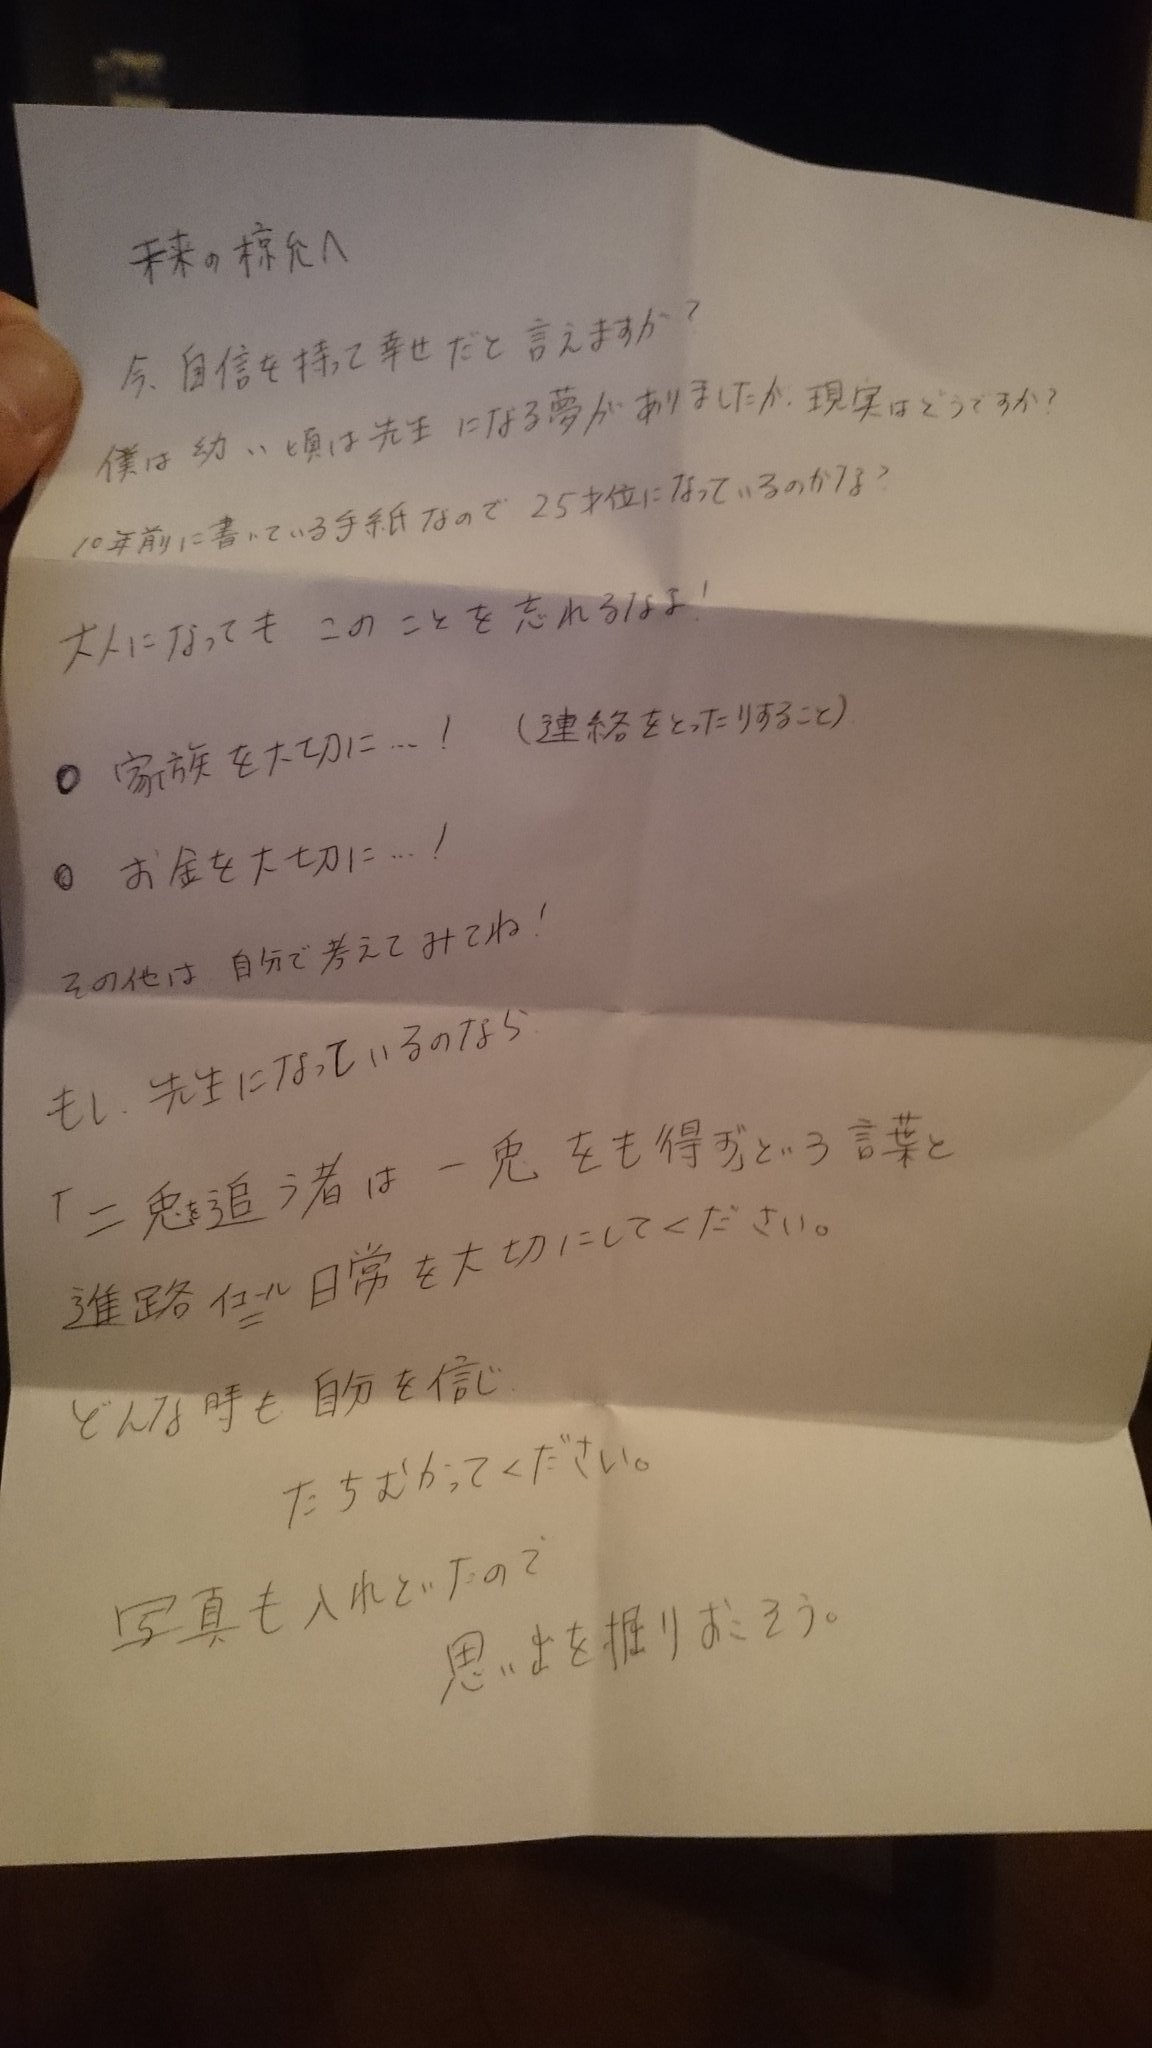 未来の椋允へ
今、自信を持って幸せだと言えますか？
僕は幼い頃は先生になる夢がありましたが、現実はどうですか？
10年前に書いている手紙なので25才位になっているのかな？
大人になってもこのことを忘れるなよ！
○ 家族を大切に…！（連絡をとったりすること）
○ お金を大切に…！
その他は自分で考えてみてね！
もし、先生になっているのなら
「二兎を追う者は一兎をも得ず」という言葉と
進路イコール=日常を大切にしてください。
どんな時も自分を信じ
たちむかってください。
写真も入れといたので
思い出を掘りおこそう。